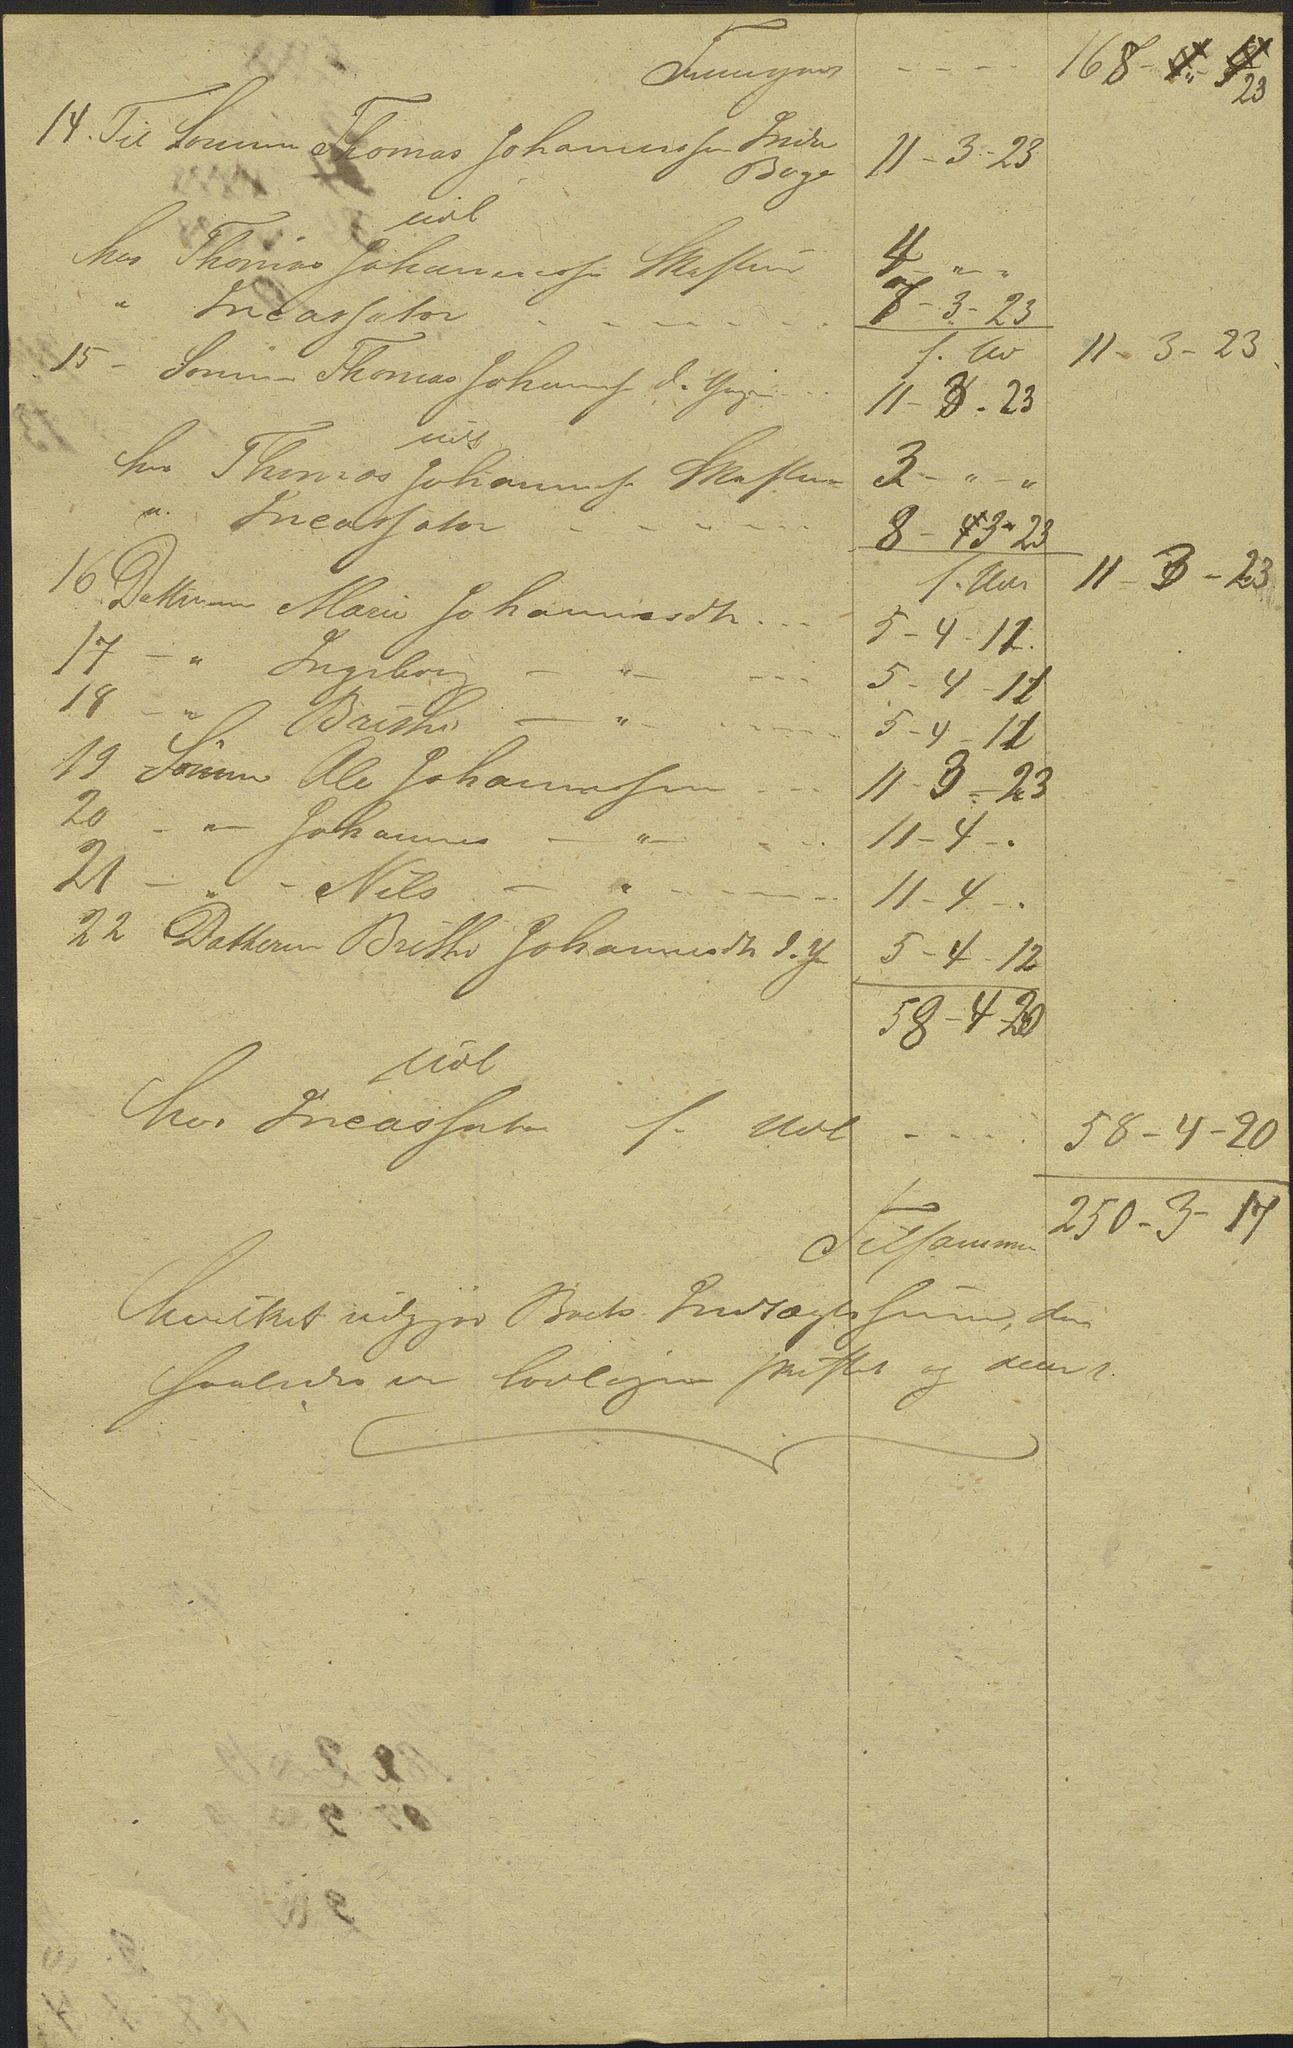 Transport - - - - 168 - " - 23
14. Til Sønnen Thomas Johannessen Indre
Bøge 11 - 3 - 23
Udl
hos Thomas Johannessen 4 - " - "
" Incassator - - - - - - 7 - 3 - 23
f. Udl 11 - 3 - 23
15 - Sønnen Thomas Johanness d. Yngre - - 11 - 3 - 23
Udl
hos Thomas Johanness 3 - " - "
" Incassator - - - - - - 8 - 3 - 23
f. Udl 11 - 3 - 23
16 Datteren Mari Johannesdtr - - - 5 - 4 - 12
17 - " Ingeborg - " - - - - 5 - 4 - 12
18 - " Brithe - " - - - - 5 - 4 - 12
19 Sønnen Ole Johannessen - - - 11 - 3 - 23
20 - " - Johannes - " - - - 11 - 4 - .
21 - " - Nils - " - - - - 11 - 4 - .
22 Datteren Brithe Johannesdtr d. Y. 5 - 4 - 12
58 - 4 - 20
Udl
hos Incassator f. Udl - - - - 58 - 4 - 20
Tilsammen 250 - 3 - 17
hvilket udgjør Boets Indtægtssum, der
saaledes er lovligen skiftet og deelt.